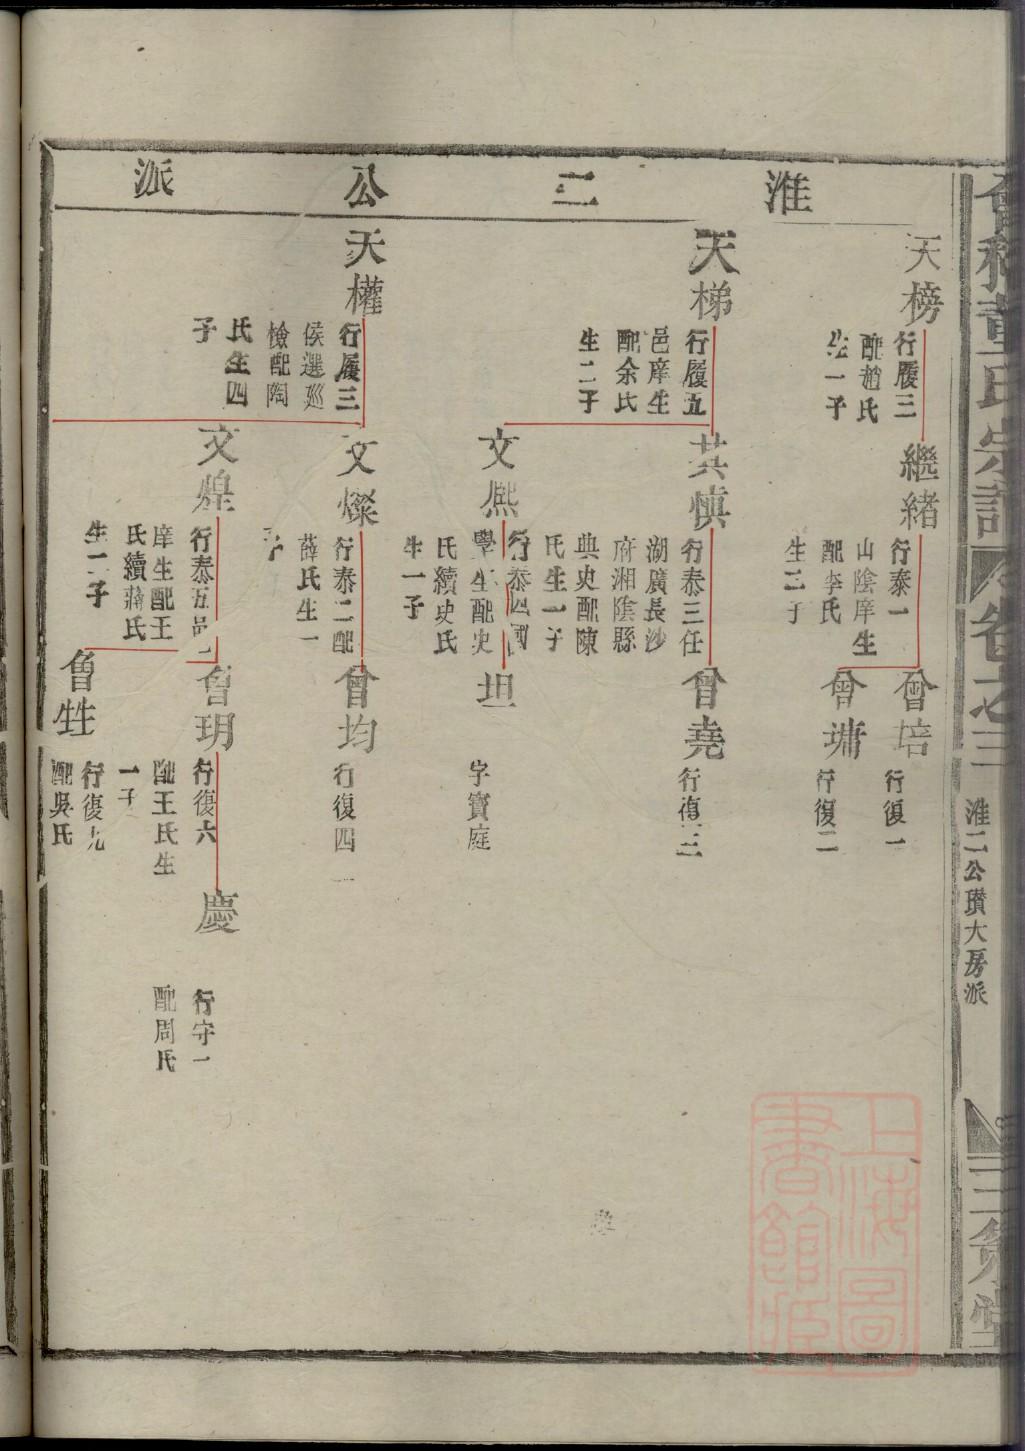 淮二公派
天榜
行履三
配趙氏
生一子
繼緒
行泰一
山陰庠生
配李氏
生二子
曾培
行復一
曾墉
行復二
天梯
行履五
邑庠生
配余氏
生二子
其慎
行泰三任
湖廣長沙
府湘陰縣
典史配陳
氏生一子
曾堯
行復三
文熈
行泰四國
學生配史
氏續史氏
生一子
坦
字寶庭
天權
行履三
侯選廵
檢配陶
氏生四
子
文燦
行泰二配
薛氏生一
子
曾均
行復四
文煌
行泰五邑
庠生配王
氏續蔣氏
生二子
曾玥
行復六
配王氏生
一子
慶
行守一
配周氏
魯甡
行復九
配吳氏
會稽董氏宗譜
卷之三
淮二公瓚大房派
上海圖書館藏